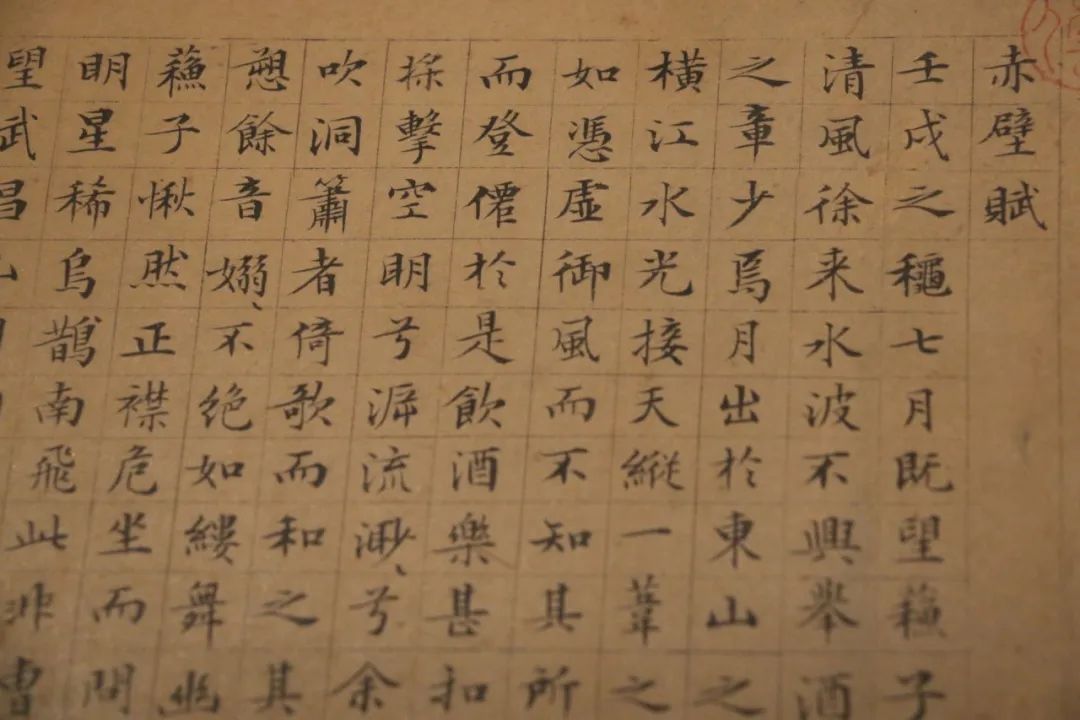 赤壁賦
壬戌之穐七月既望蘓子
清風徐来水波不興舉酒
之章少焉月出於東山之
横江水光接天縱一葦之
如憑虛御風而不知其所
而登僊於是飲酒樂甚扣
擊空明兮泝流渺、兮余
吹洞簫者倚歌而和之其
愬餘音嫋、不絕如縷舞幽
蘓子愀然正襟危坐而問
明星稀烏鵲南飛此非曹
望武昌